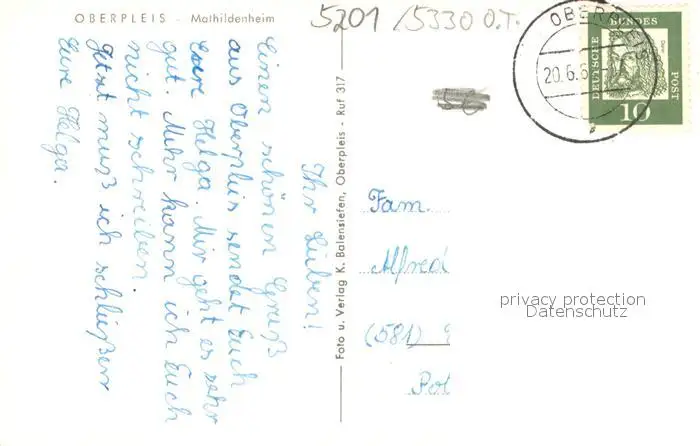 OBERPLEIS - Mathildenheim
5201 /5330 O.T.
OBERPLEIS
20.6.6
DEUTSCHE
BUNDES
POST
10
Ihr Lieben!
Einen schönen Gruß
aus Oberpleis sendet Euch
Eure Helga. Mir geht es sehr
gut. Mehr kann ich Euch
nicht schreiben.
Jetzt muß ich schließen
Eure Helga.
Foto u. Verlag K. Balensiefen, Oberpleis - Ruf 317
Fam.
Alfred
(581)
privacy protection
Datenschutz